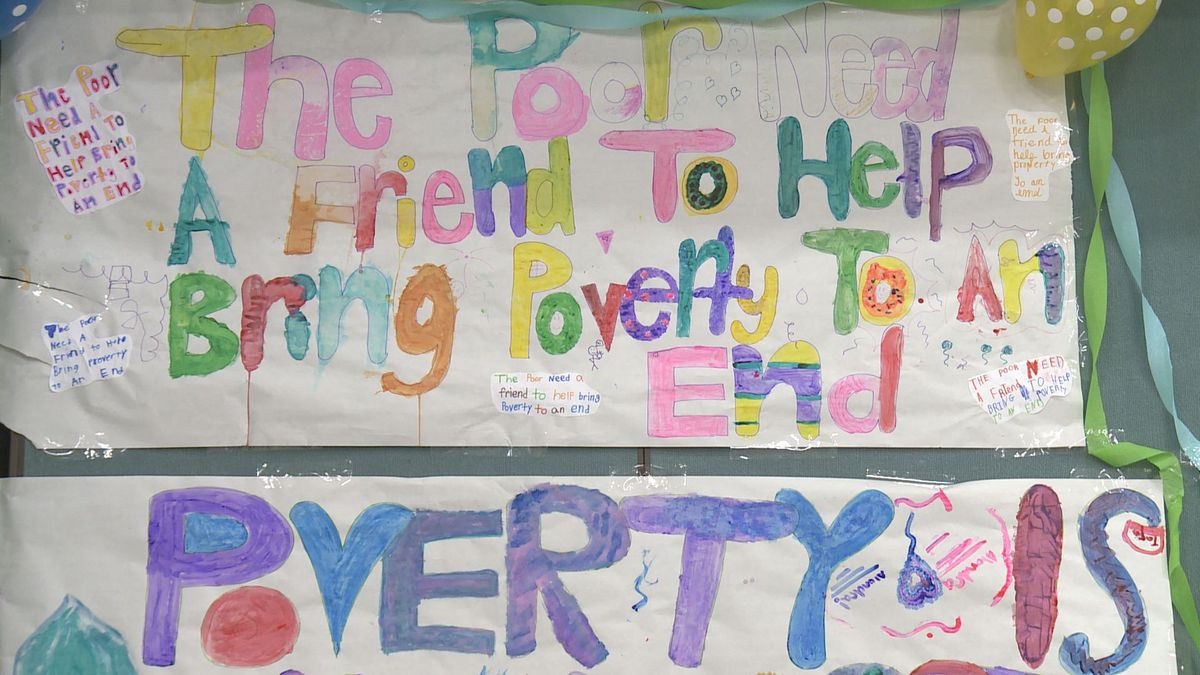 The Poor Need
A Friend To Help
Bring Poverty To An
End
The Poor
Need A
Friend To
Help Bring
Poverty To
An End
The poor
need a
friend to
help bring
property
To an
end
The Poor
Need A
Friend to Help
Bring Proverty
to An End
The Poor Need a
friend to help bring
Poverty to an end
THE POOR NEED
A FRIEND TO HELP
BRING POVERTY
TO AN END
POVERTY IS